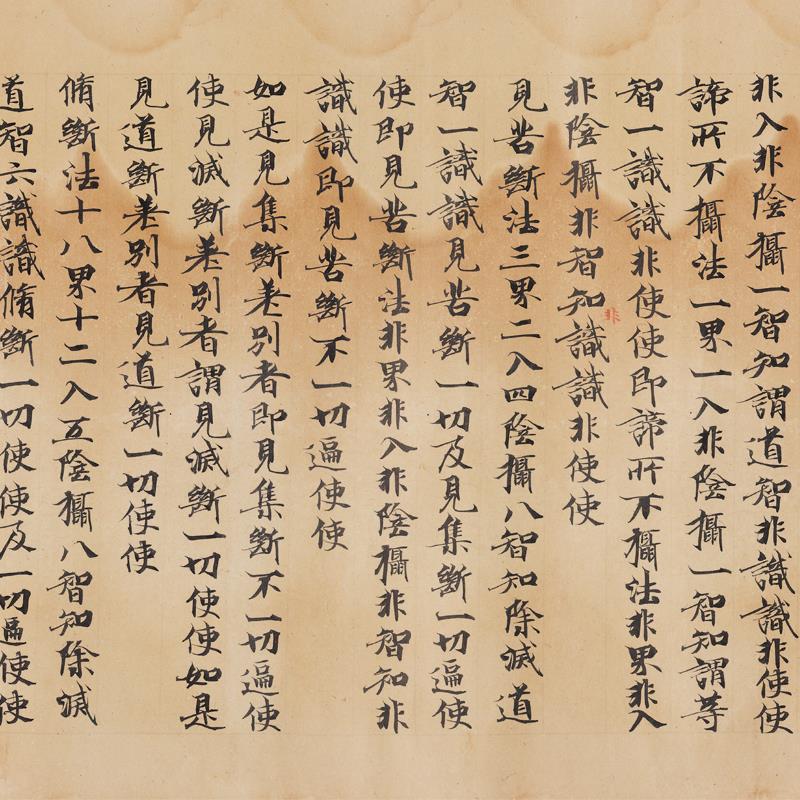 非入非陰攝一智知謂道智非識識非使使
諦所不攝法一界一入非陰攝一智知謂等
智一識識非使使即諦所不攝法非界非入
非陰攝非智知非識識非使使
見苦斷法三界二入四陰攝八智知除滅道
智一識識見苦斷一切及見集斷一切遍使
使即見苦斷法非界非入非陰攝非智知非
識識即見苦斷不一切遍使使
如是見集斷差別者即見集斷不一切遍使
使見滅斷差別者謂見滅斷一切使使如是
見道斷差別者見道斷一切使使
脩斷法十八界十二入五陰攝八智知除滅
道智六識識脩斷一切使使及一切遍使使